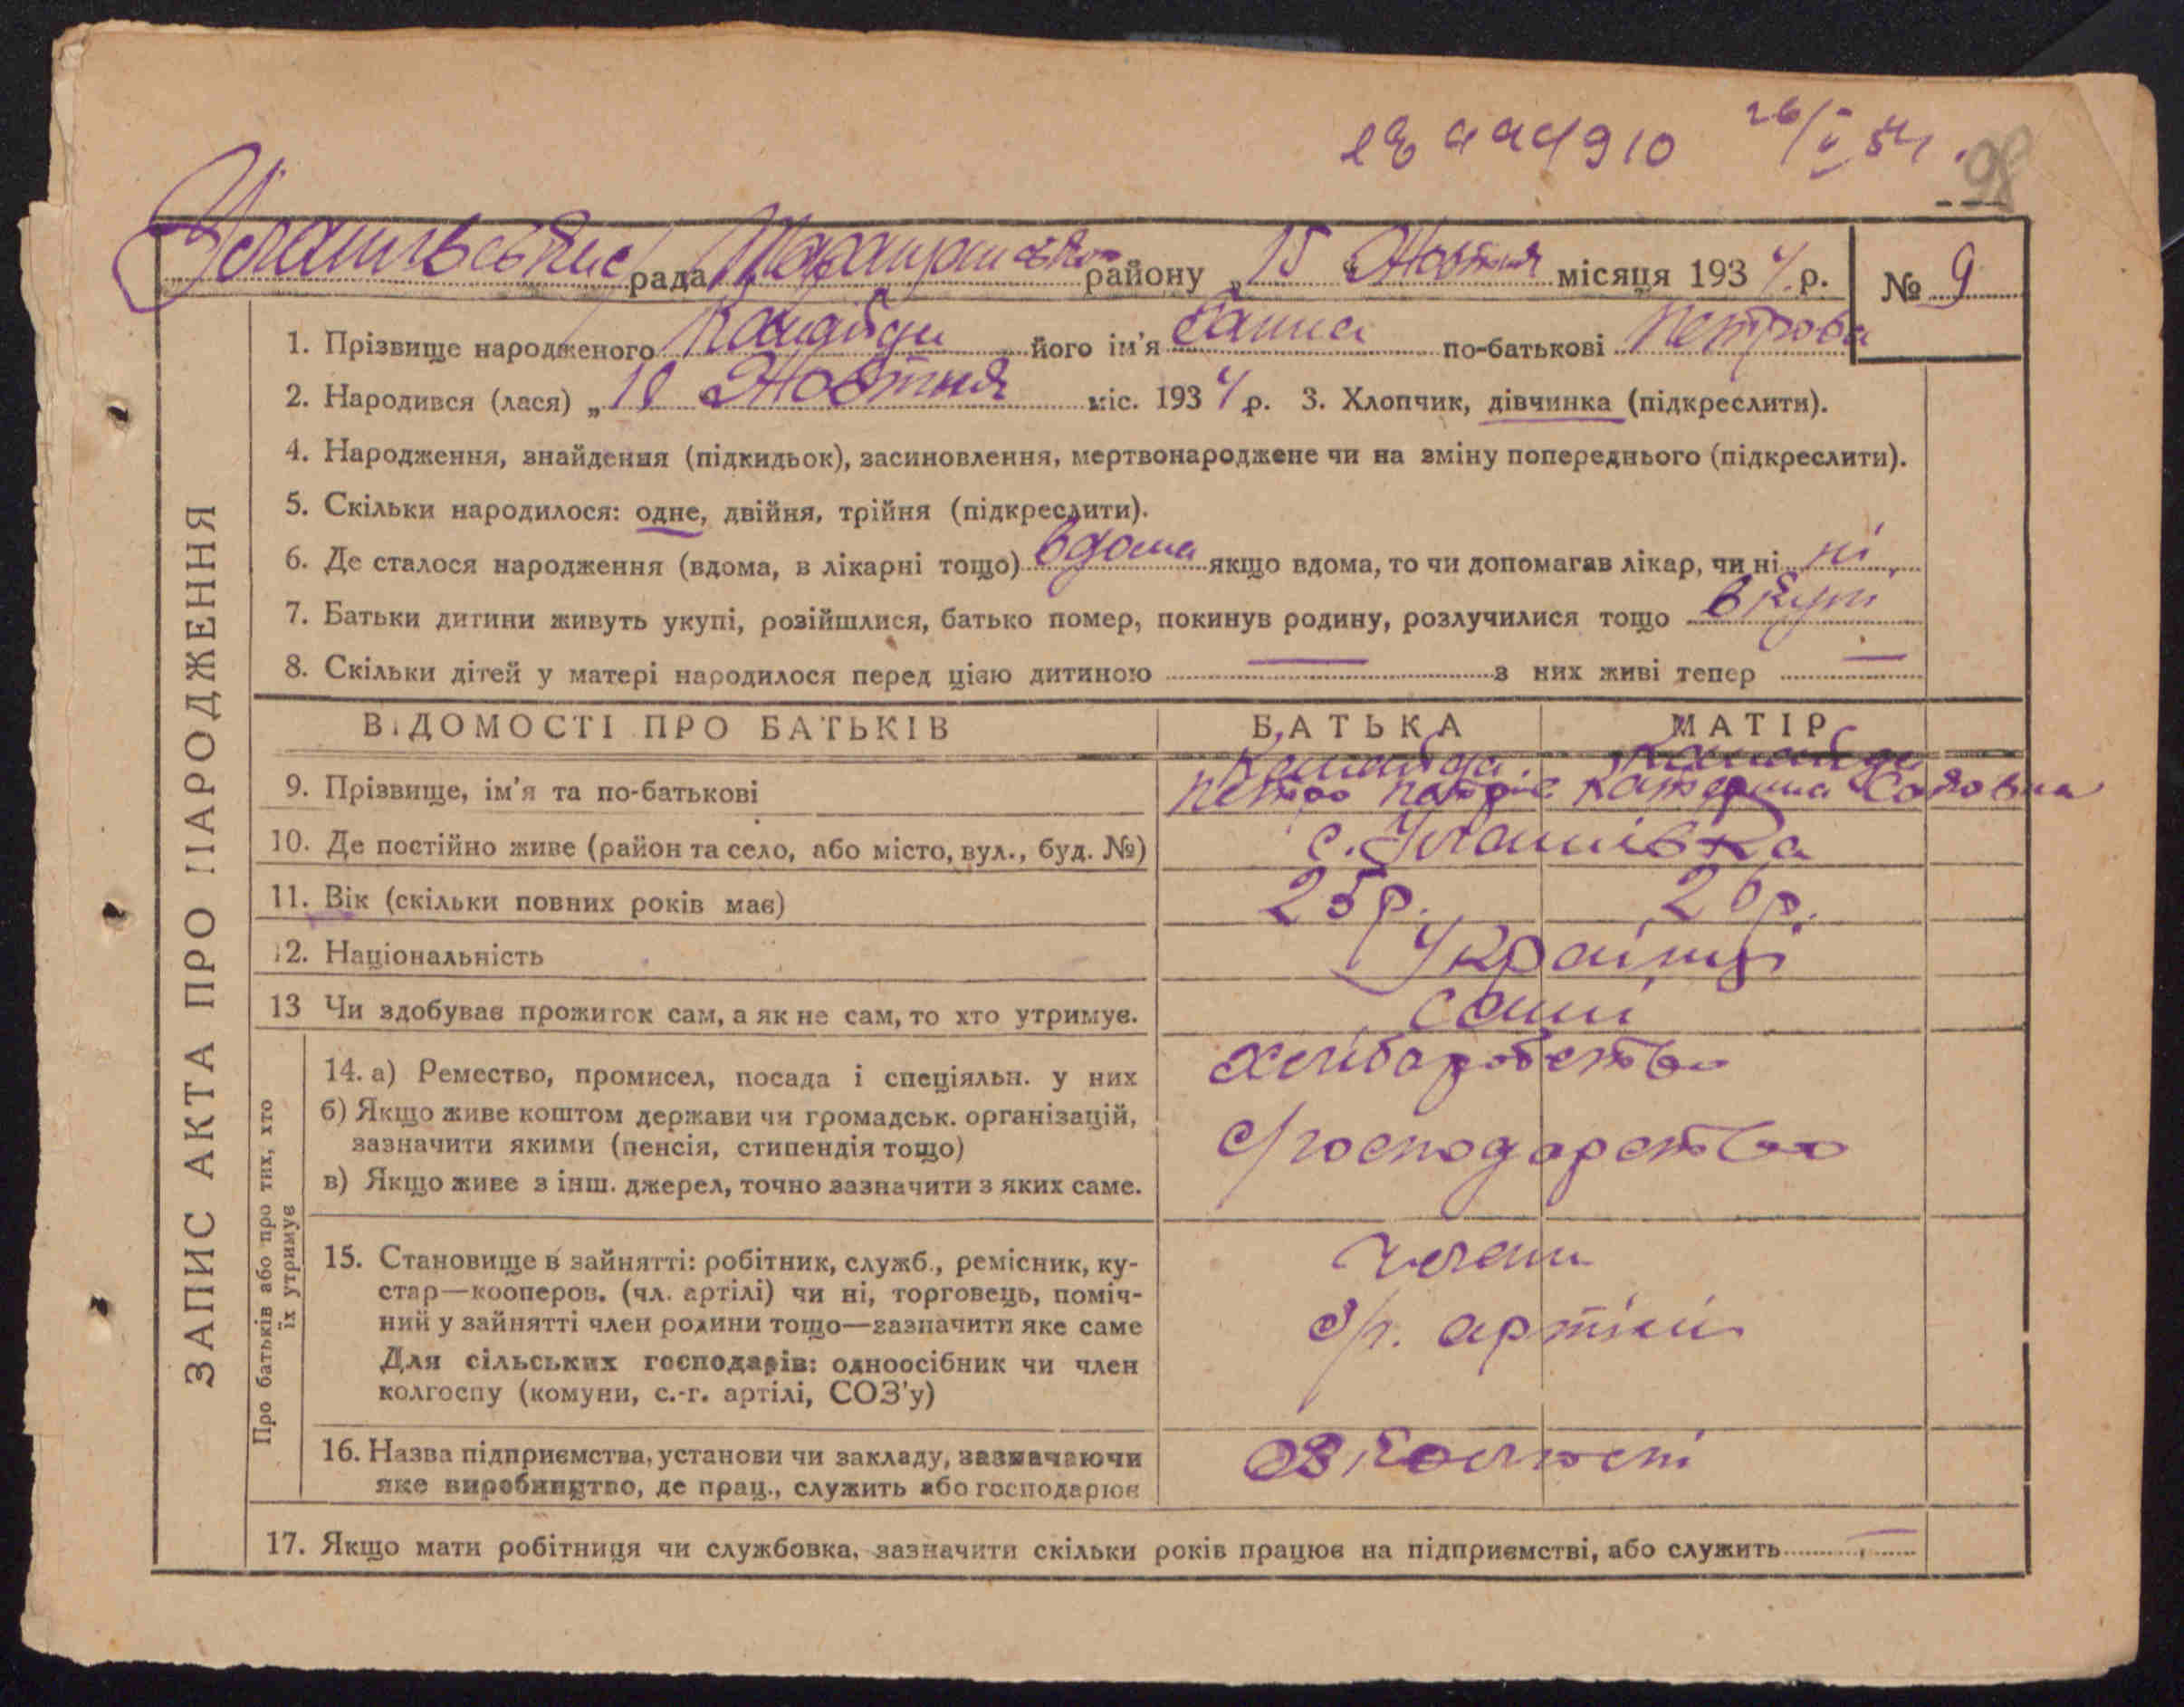 26/V 54.
98
рада району „15“ Жовтня місяця 1934 р. № 9
1. Прізвище народженого його ім'я Ганна по-батькові Петрова
2. Народився (лася) „10 Жовтня міс. 1934 р. 3. Хлопчик, дівчинка (підкреслити).
4. Народження, знайдення (підкидьок), засиновлення, мертвонароджене чи на зміну попереднього (підкреслити).
5. Скільки народилося: одне, двійня, трійня (підкреслити).
6. Де сталося народження (вдома, в лікарні тощо) вдома якщо вдома, то чи допомагав лікар, чи ні ні
7. Батьки дитини живуть укупі, розійшлися, батько помер, покинув родину, розлучилися тощо вкупі
8. Скільки дітей у матері народилося перед цією дитиною — з них живі тепер —
ВІДОМОСТІ ПРО БАТЬКІВ БАТЬКА МАТІР
9. Прізвище, ім'я та по-батькові Петро Катерина
10. Де постійно живе (район та село, або місто, вул., буд. №) с. Уланівка
11. Вік (скільки повних років має) 25 р. 26 р.
12. Національність Українці
13 Чи здобуває прожиток сам, а як не сам, то хто утримує. самі
14. а) Ремество, промисел, посада і спеціяльн. у них хліборобство
б) Якщо живе коштом держави чи громадськ. організацій,
зазначити якими (пенсія, стипендія тощо) господарство
в) Якщо живе з інш. джерел, точно зазначити з яких саме.
15. Становище в зайнятті: робітник, служб., ремісник, ку-
стар—кооперов. (чл. артілі) чи ні, торговець, поміч-
ний у зайнятті член родини тощо—зазначити яке саме
Для сільських господарів: одноосібник чи член
колгоспу (комуни, с.-г. артілі, СОЗ'у)
члени
артілі
16. Назва підприємства, установи чи закладу, зазначаючи
яке виробництво, де прац., служить або господарює
в колгоспі
17. Якщо мати робітниця чи службовка, зазначити скільки років працює на підприємстві, або служить —
ЗАПИС АКТА ПРО НАРОДЖЕННЯ
Про батьків або про тих, хто
їх утримує